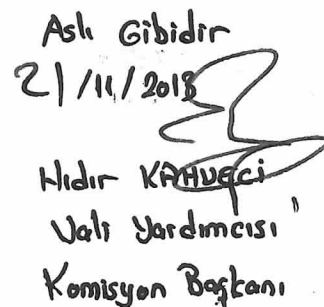 Aslı Gibidir
21/11/2018
Hıdır KAHVECİ
Vali Yardımcısı
Komisyon Başkanı